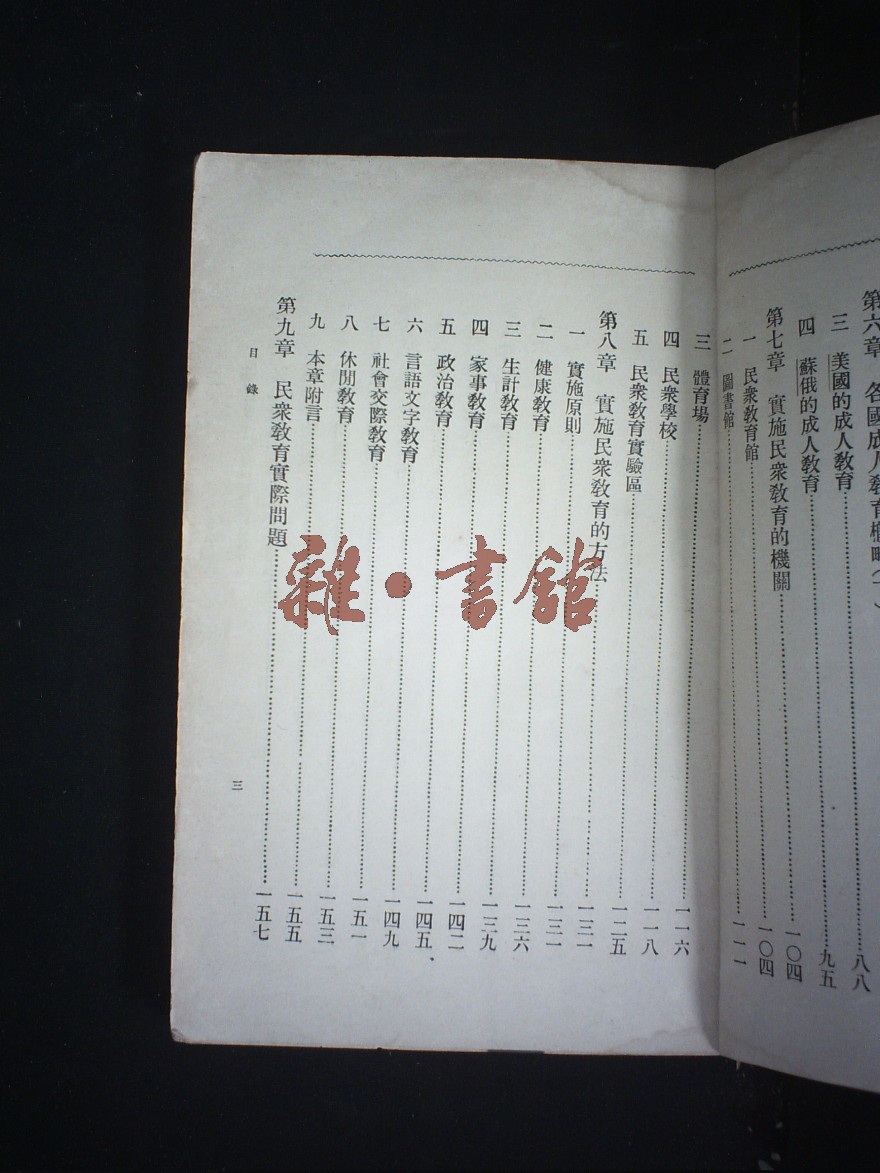 第六章 各國成人教育概略
三 美國的成人教育……八八
四 蘇俄的成人教育……九五
第七章 實施民衆教育的機關……一〇四
一 民衆教育館……一〇四
二 圖書館……一一一
三 體育場……一一六
四 民衆學校……一一八
五 民衆教育實驗區……一二五
第八章 實施民衆教育的方法……一三一
一 實施原則……一三一
二 健康教育……一三六
三 生計教育……一三九
四 家事教育……一四二
五 政治教育……一四五
六 言語文字教育……一四九
七 社會交際教育……一五一
八 休閒教育……一五三
九 本章附言……一五五
第九章 民衆教育實際問題……一五七
目錄
三
雜·書館